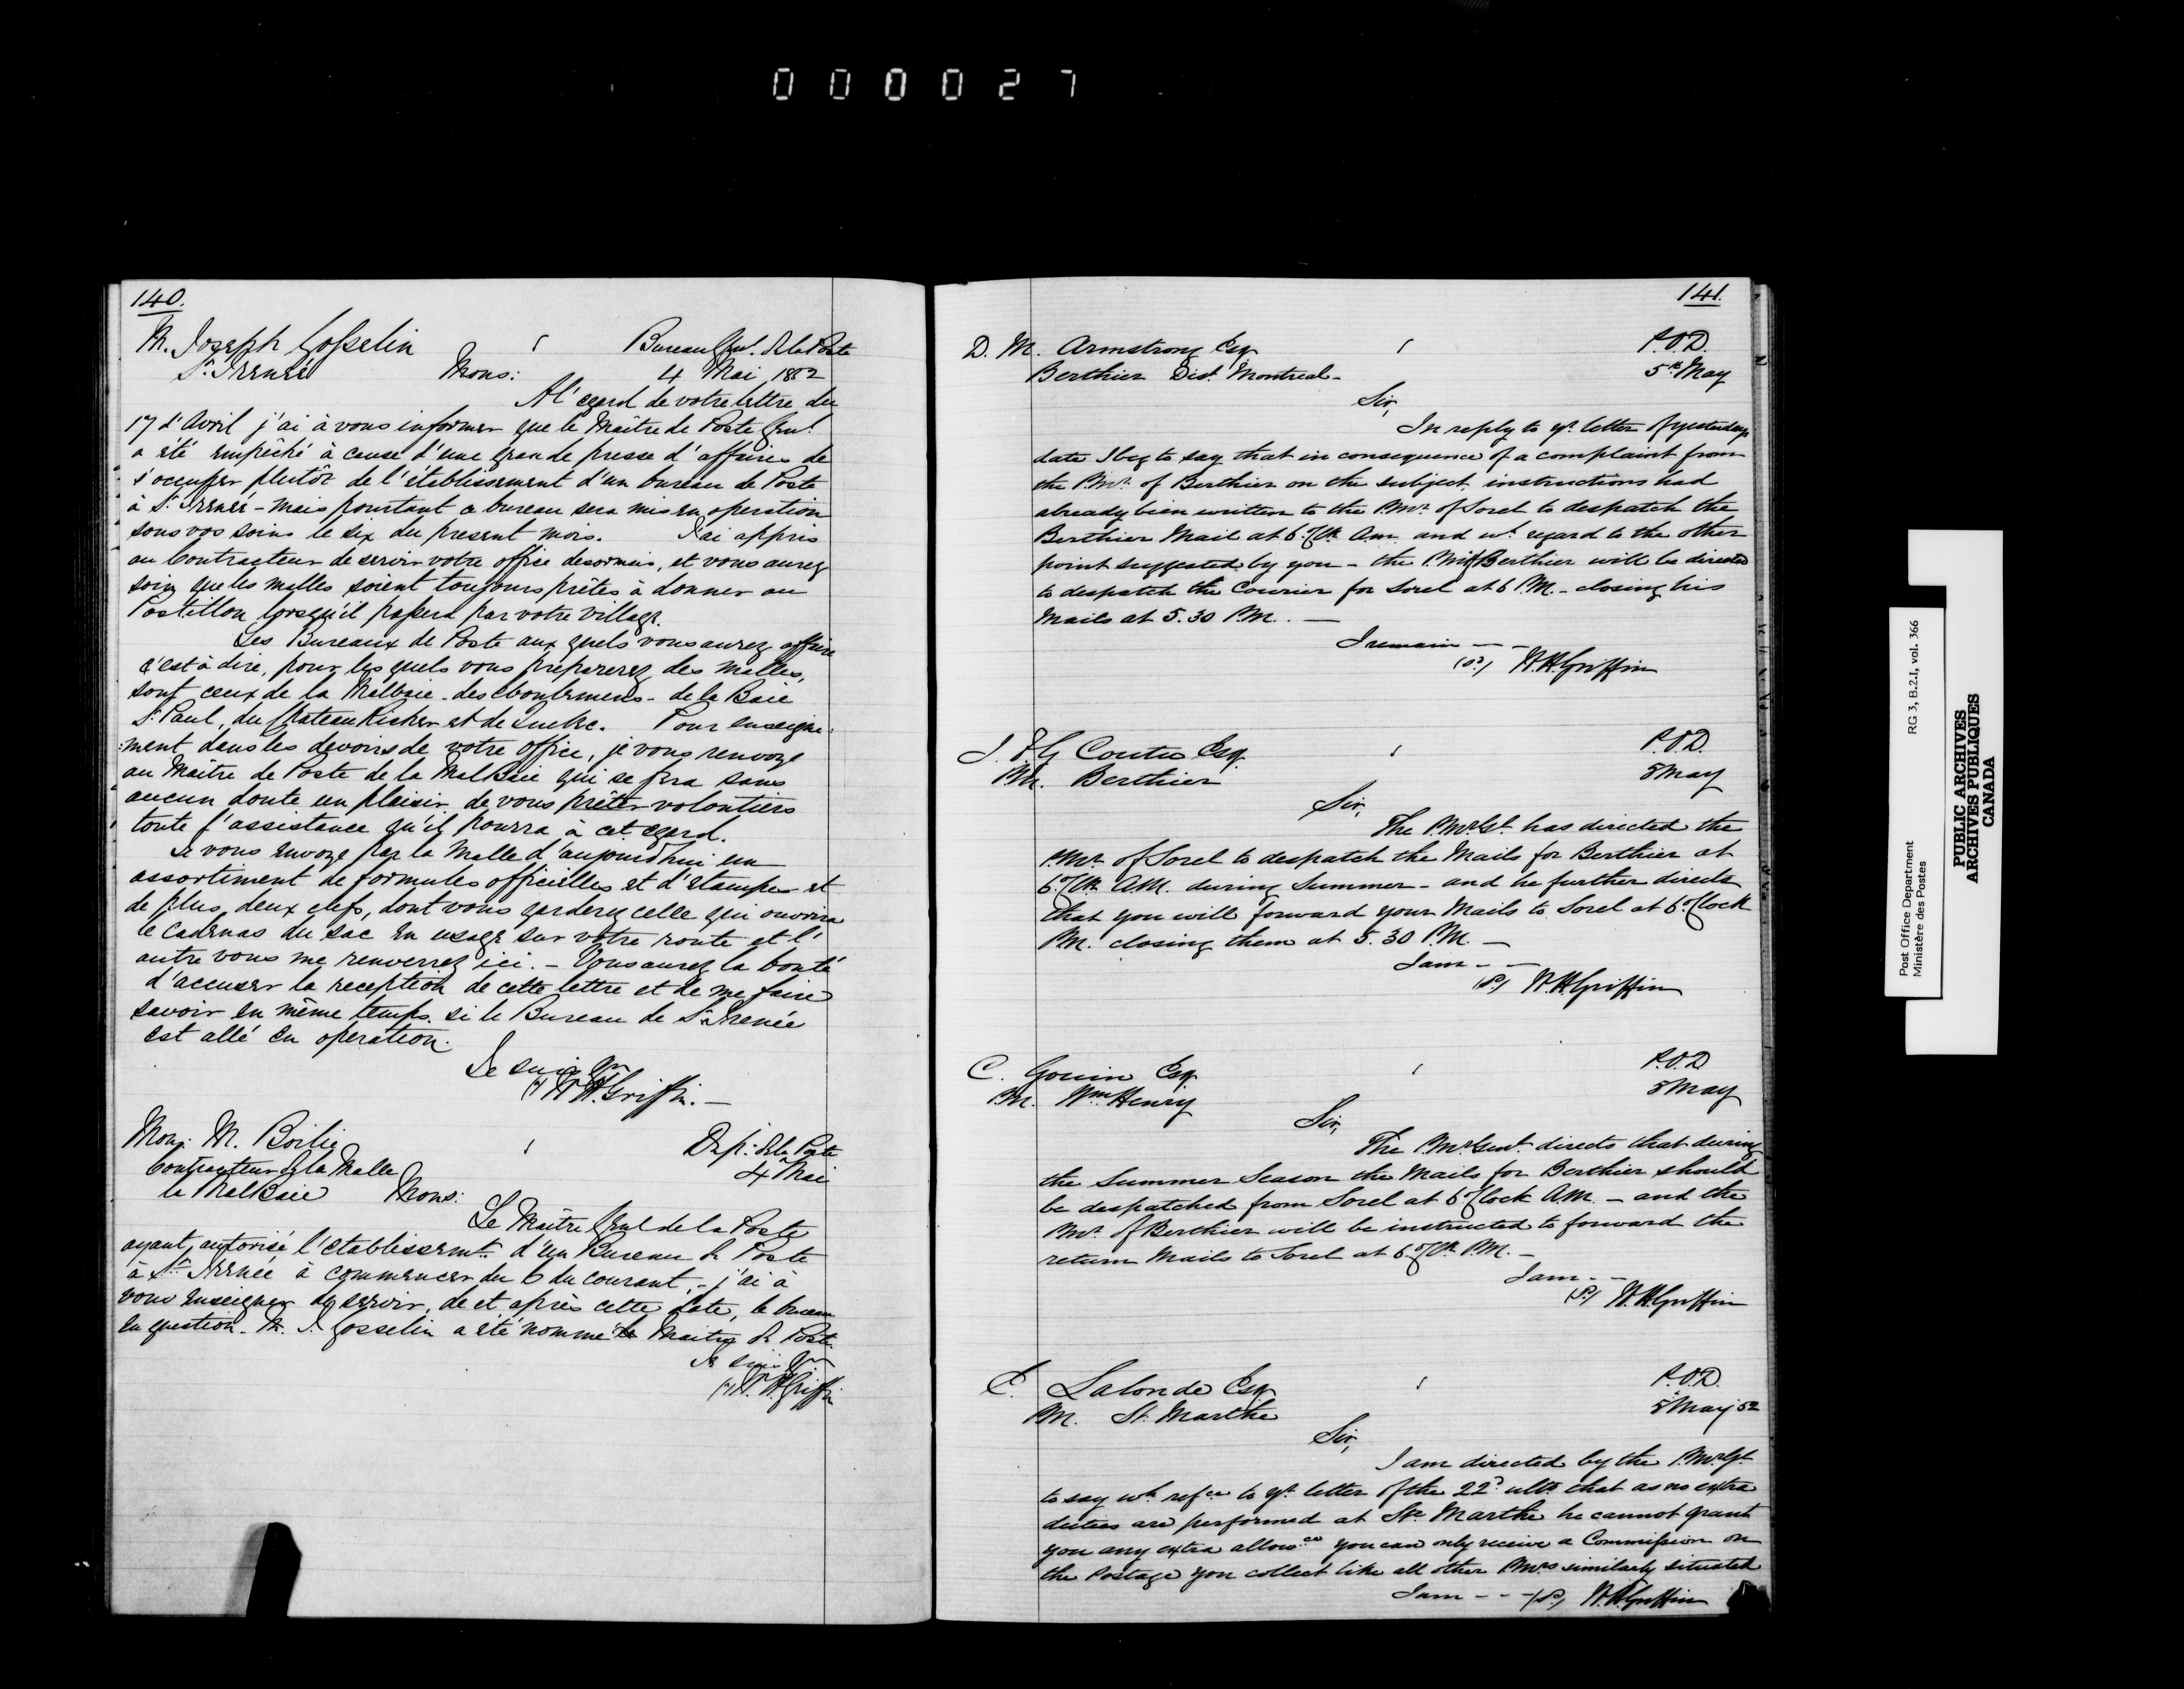 000027
140.
M. Joseph Gosselin Bureau Genl. de la Poste
St. Irenée Mons: 4 Mai 1852
A l'egard de votre lettre du
17 d'Avril j'ai à vous informer que le Maître de Poste Genl.
a été empêché à cause d'une grande presse d'affaires de
s'occuper plutôt de l'établissement d'un bureau de Poste
à St. Irenée - mais pourtant ce bureau sera mis en operation
sous vos soins le six du present mois. J'ai appris
au Contracteur de servir votre office desormais, et vous aurez
soin que les malles soient toujours prêtes à donner au
Postillon lorsqu'il passera par votre village.
Les Bureaux de Poste aux quels vous aurez affaire
c'est à dire, pour les quels vous preparerez des malles,
sont ceux de la Malbaie - des eboulemens - de la Baie
St. Paul, du Chateau Richer et de Quebec. Pour enseigne-
:ment dans les devoirs de votre office, je vous renvoye
au Maître de Poste de la Malbaie qui se fera sans
aucun doute un plaisir de vous prêter volontiers
toute l'assistance qu'il pourra à cet egard.
Je vous envoye par la Malle d'aujourdhui un
assortiment de formules officielles et d'etampes et
de plus, deux clefs, dont vous garderez celle qui ouvrira
le Cadenas du sac en usage sur votre route et l'
autre vous me renverrez ici. - Vous aurez la bonté
d'accuser la reception de cette lettre et de me faire
savoir en même temps si le Bureau de St. Irenée
est allé en operation.
Je suis
W.H. Griffin. -
Mons. M. Boilie Dept. de la Poste
Contracteur de la Malle 4 Mai
la Malbaie Mons:
Le Maître Genl de la Poste
ayant autorisé l'etablissemt. d'un Bureau de Poste
à St. Irenée à commencer du 6 du courant, - j'ai à
vous enseigner de servir, de et après cette date, le bureau
en question. M. J. Gosselin a été nommé le Maitre de Poste.
Je suis
W.H. Griffin
141.
D. M. Armstrong Esq P.O.D.
Berthier Dist. Montreal - 5th May
Sir,
In reply to yr. letter of yesterdays
date I beg to say that in consequence of a complaint from
the P.Mr. of Berthier on the subject, instructions had
already been written to the P.Mr. of Sorel to despatch the
Berthier Mail at 6 o'Ck. A.M. and wh. regard to the other
point suggested by you - the P.Mr. of Berthier will be directed
to despatch the Courier for Sorel at 6 P.M. - closing his
Mails at 5.30 P.M. -
I remain - -
(Sd.) W.H. Griffin
Coutu Esq P.O.D.
P.M. Berthier 5 May
Sir,
The P.Mr.Gl. has directed the
P.Mr. of Sorel to despatch the Mails for Berthier at
6 o'Ck. A.M. during Summer - and he further directs
that you will forward your Mails to Sorel at 6 o'Clock
P.M. closing them at 5.30 P.M. -
I am - -
(Sd.) W.H. Griffin
C. Gouin Esq P.O.D
P.M. Wm. Henry 5 May
Sir,
The P.Mr. Genl. directs that during
the Summer Season the Mails for Berthier should
be despatched from Sorel at 6 o'Clock A.M. - and the
P.Mr. of Berthier will be instructed to forward the
return Mails to Sorel at 6 o'Ck. P.M. -
I am - -
(Sd.) W.H. Griffin
E. Lalonde Esq P.O.D.
P.M. St. Marthe 5 May 52
Sir,
I am directed by the P.Mr.Gl.
to say wh. refce. to yr. letter of the 22d. ulto. that as no extra
duties are performed at Ste. Marthe he cannot grant
you any extra allowce. you can only receive a Commission on
the Postage you collect like all other P.Mrs similarly situated
I am - - - (Sd.) W.H. Griffin
Post Office Department RG 3, B.2.I, vol. 366
Ministère des Postes
PUBLIC ARCHIVES
ARCHIVES PUBLIQUES
CANADA